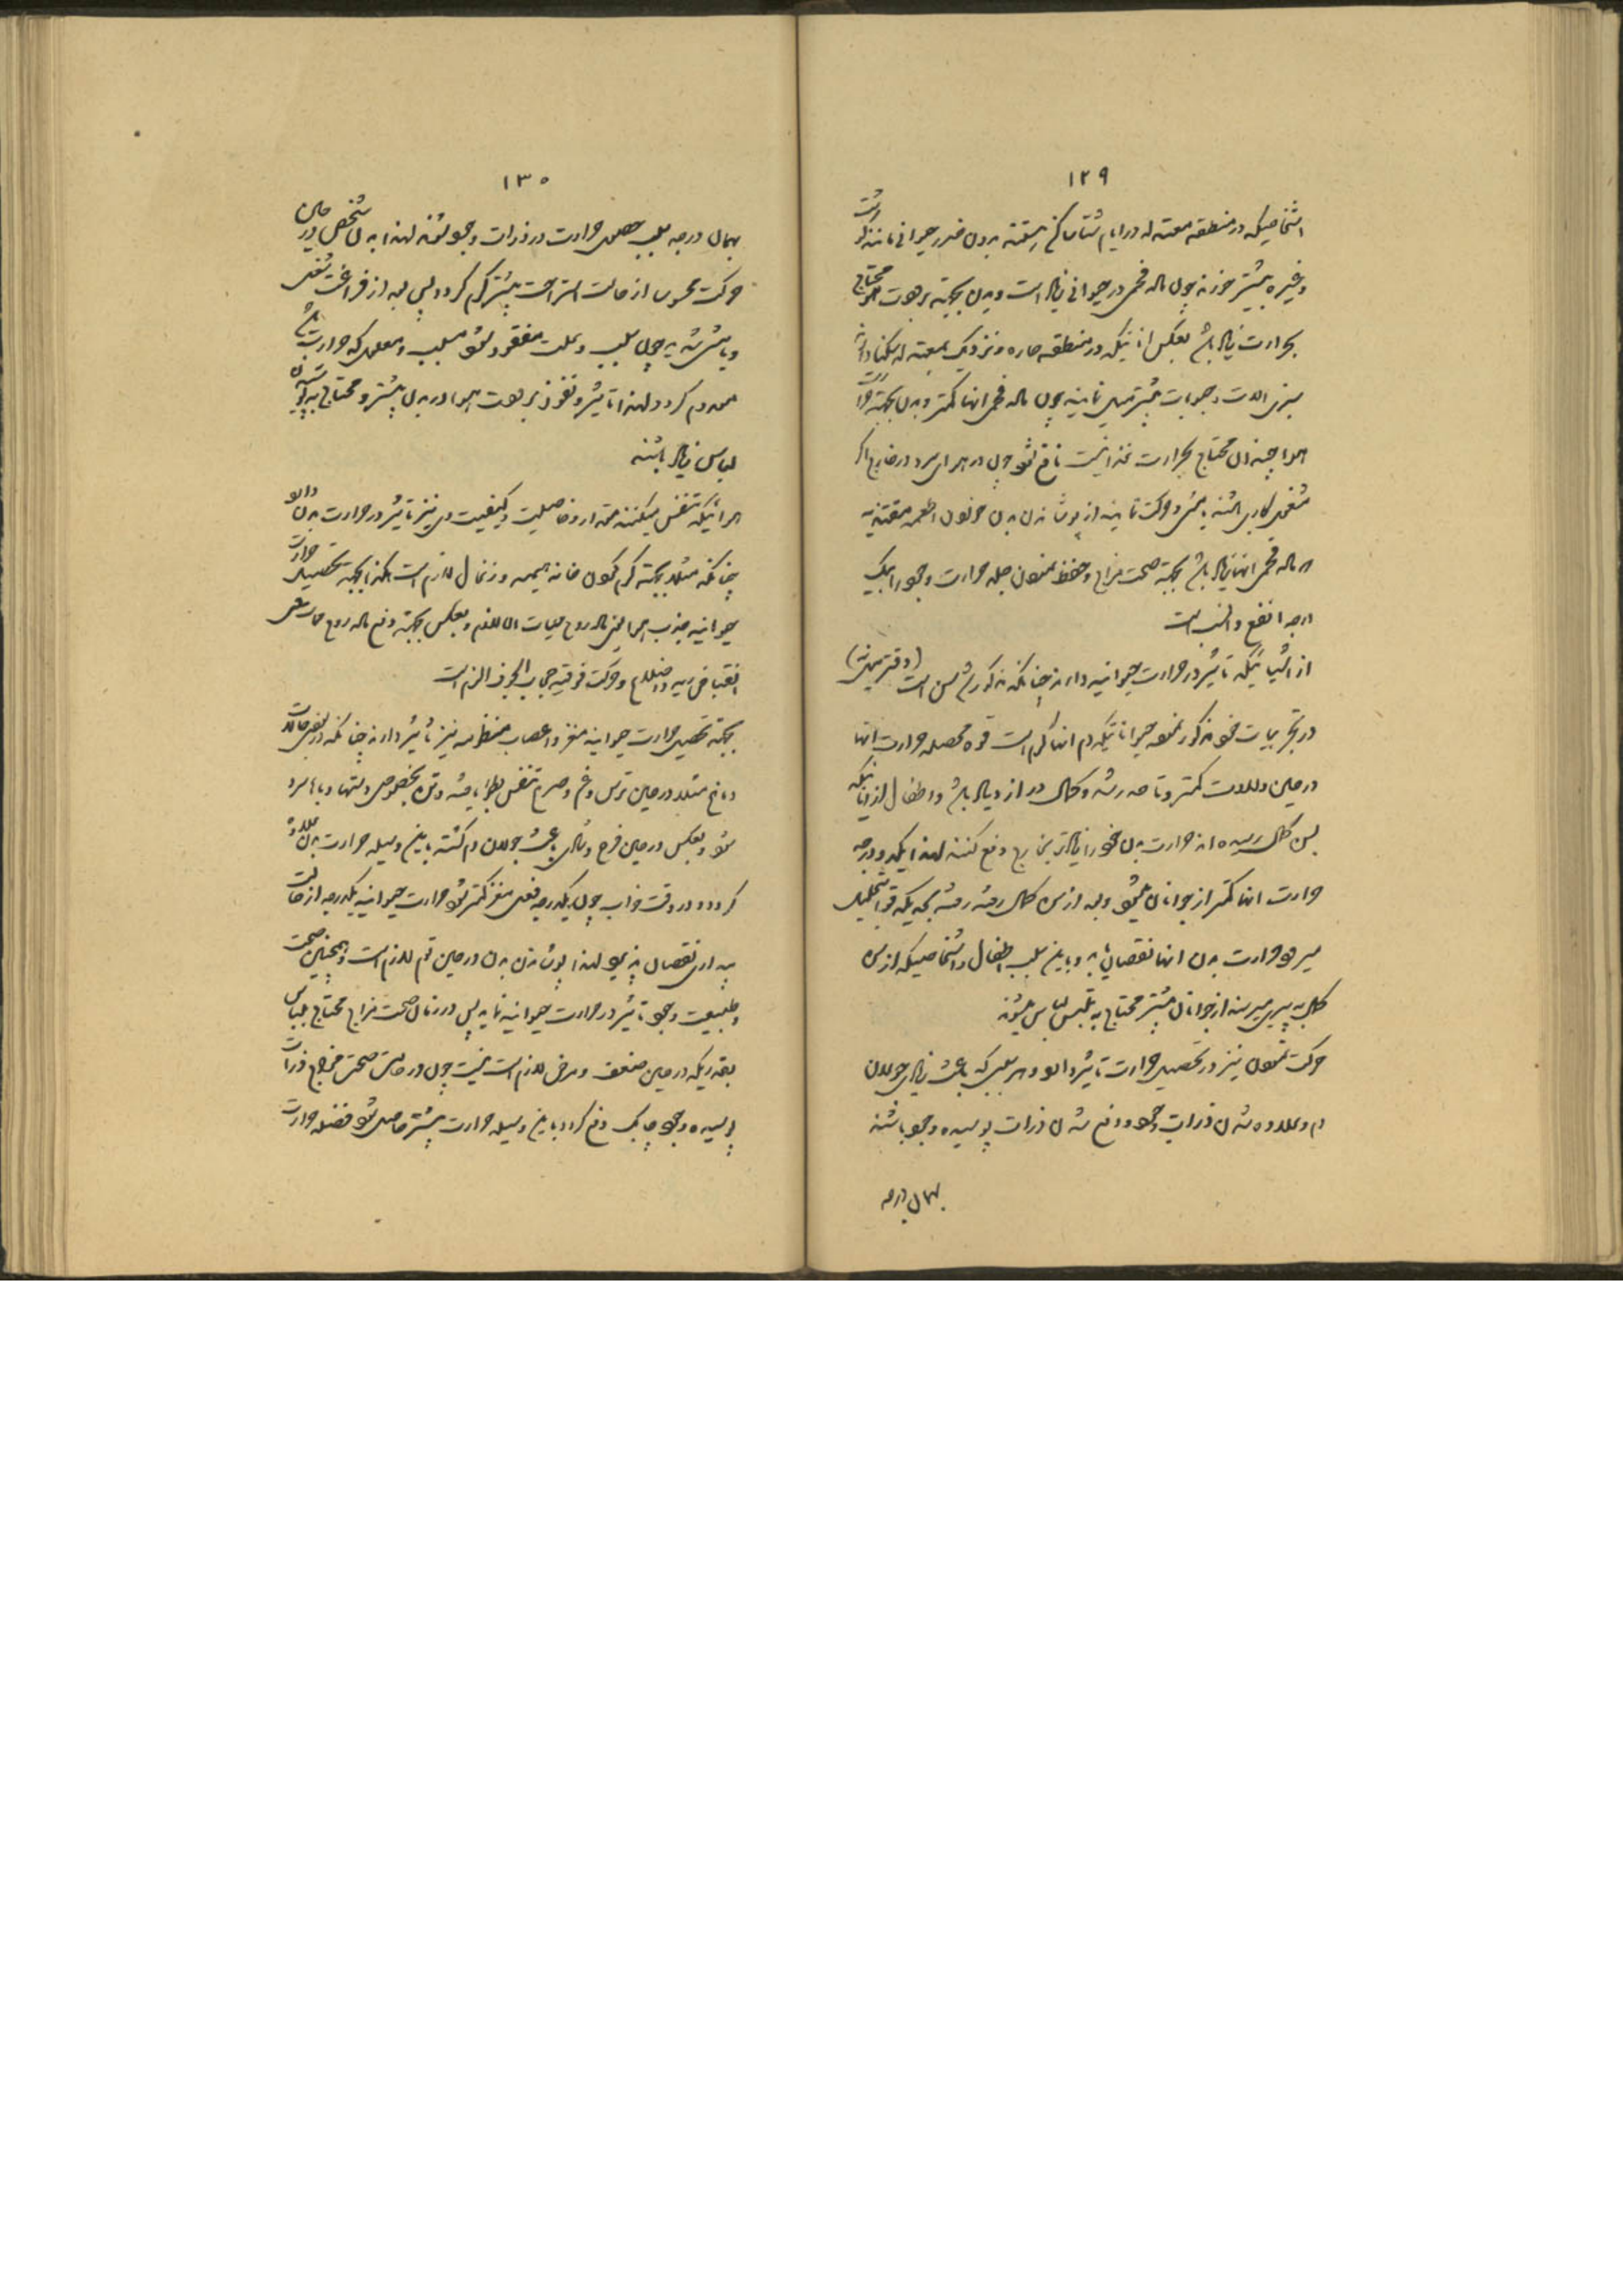 ١٢٩
اشخاصیکه در منطقه معتدله در ایام شتا ساکن هستند بدون ضرر حیوانی مانند گوشت
وغیره بیشتر خورند چون ماده فحمی در حیوانی زیاد است و بدن بجهته برودت هوا محتاج
بحرارت زیاد باشد بعکس انانیکه در منطقه حاره و نزدیک بمعتدله سکنا دارند
بسبزی الات وحبوبات بیشتر میل نمایند چون ماده فحمی انها کمتر وبدن بجهته حرارت
هوا چندان محتاج بحرارت غذا نیست نافع شود چون در هوای سرد در خارج اگر
مشغول کاری باشند یا مشی وحرکت نمایند از پوشانیدن بدن خوردن اطعمه مقتدیه
که ماده فحمی انها زیاد باشد بجهته صحت مزاج وحفظ نمودن جمله حرارت وجود را بیک
درجه انفع وانسب است
از اشیائیکه تاثیر در حرارت حیوانیه دارند چنانکه مذکور شد سن است
در تجربیات خود مذکور نموده حیواناتیکه دم انها گرم است قوه محصله حرارت انها
در حین ولادت کمتر وتا حد رشد وکمال در ازدیاد باشد واطفال از انانیکه
بسن کمال رسیده اند حرارت بدن خود را زیادتر بخارج دفع کنند لهذا یکدو درجه
حرارت انها کمتر از جوانان میشود وبعد از سن کمال رفته رفته بجهة یکه قوا بتحلیل
میرود حرارت بدن انها نقصان یابد وباین سبب اطفال واشخاصیکه از سن
کمال به پیری میرسند از جوانان بیشتر محتاج به تلبس لباس میشوند
حرکت نمودن نیز در تحصیل حرارت تاثیر دارد وهر سببی که باعث زیادی جولان
دم وعلاوه شدن ذرات وجود ودفع شدن ذرات پوسیده وجود باشند
بهمان درجه
١٣٠
بهمان درجه سبب حصول حرارت در ذرات وجود شوند لهذا بدن شخص در حین
حرکت محسوسا از حالت استراحت بیشتر گرم گردد پس بعد از فراغت شغل
ویا مشی شدید چون سبب وعلت مفقود شود مسبب ومعلول که حرارت باشد
معدوم گردد لهذا تاثیر ونفوذ برودت هوا در بدن بیشتر ومحتاج به پوشیدن
لباس زیاد باشند
هوائیکه تنفس میکنند مقدار وخاصیت وکیفیت وی نیز تاثیر در حرارت بدن دارد
چنانکه مثلا بجهته گرم نمودن خانه هیمه وزغال لازم است کذا بجهته تحصیل حرارت
حیوانیه جذب هوا یعنی ماده روح حیات الا لازم وبعکس بجهته دفع ماده روح ممات عمل
انقباض ریه واضلاع وحرکت فوقیه حجاب الجوف الزم است
بجهته تحصیل حرارت حیوانیه مغز واعصاب منظومه نیز تاثیر دارند چنانکه در بعض حالات
دماغ مثلا در حین ترس وغم وصرع تنفس بطؤ یافته وتن بخصوص دستها وپاها سرد
شود وبعکس در حین فرح وشادی باعث جولان دم گشته باین وسیله حرارت بدن علاوه
گردد ودر وقت خواب چون یکدرجه فعل مغز کمتر شود حرارت حیوانیه یکدرجه از حالت
بیداری نقصان پذیرد لهذا پوشانیدن بدن در حین نوم لازم است وهمچنین صحت
وطبیعت وجود تاثیر در حرارت حیوانیه نماید پس در زمان صحت مزاج محتاج بلباس
بقدریکه در حین ضعف ومرض لازم است نیست چون در حالت صحت مزاج ذرات
پوسیده وجود چابک دفع گردد باین وسیله حرارت بیشتر حاصل شود فضله حرارت